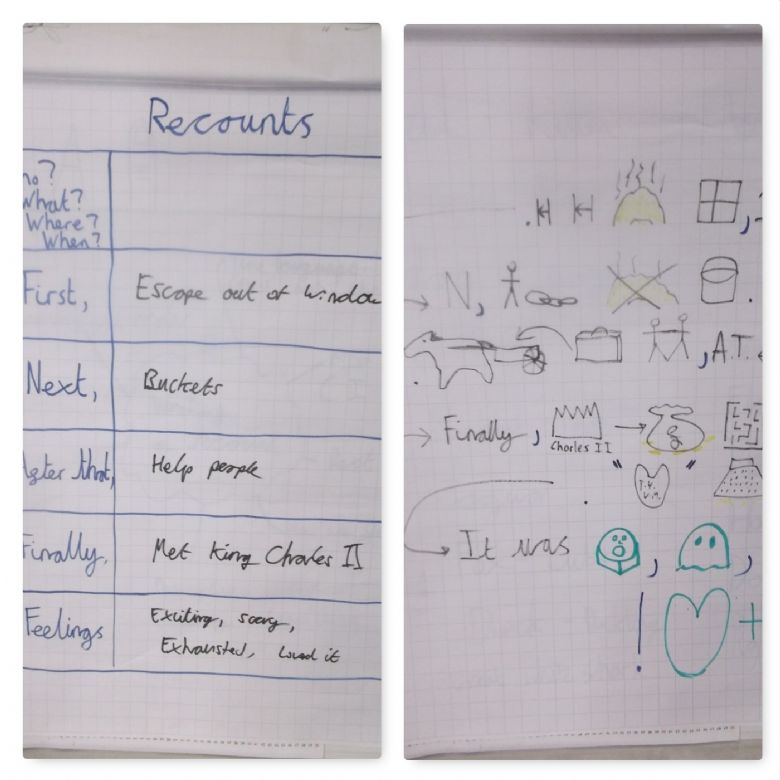 Recounts
What?
Where?
When?
First,
Escape out of window
Next,
Buckets
After that,
Help people
Finally,
Met King Charles II
Feelings
Exciting, scary,
Exhausted, Loved it
N,
, A.T.
Finally,
Charles II
It was